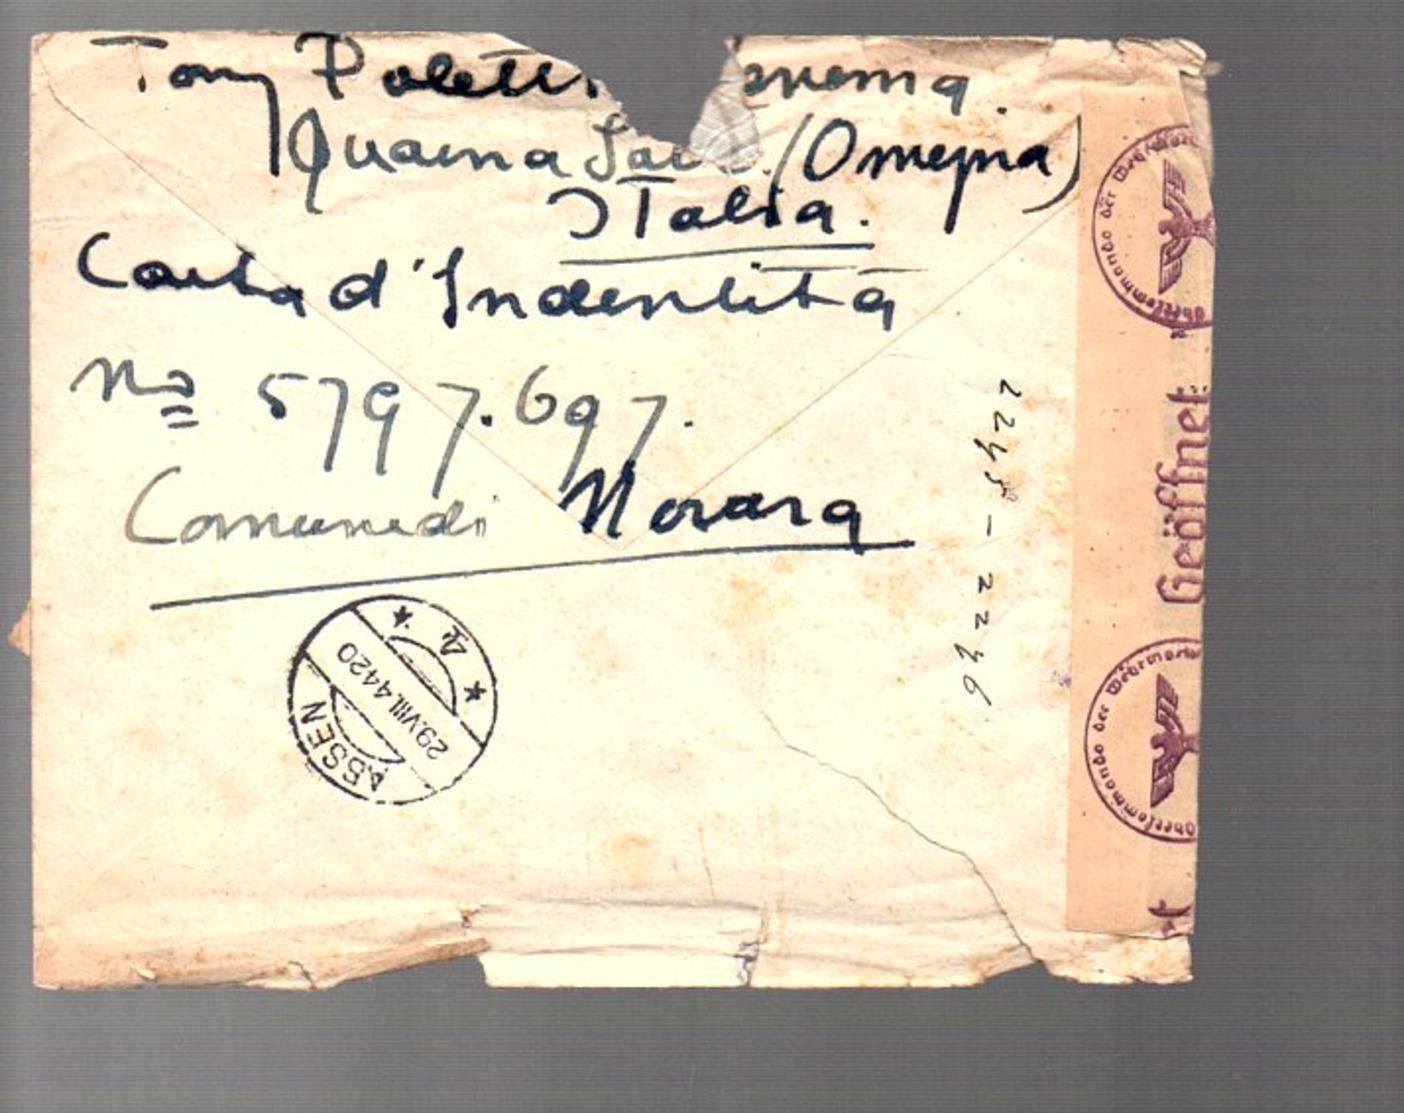 Tony Polett
Quarna (Omegna)
Italia.
Carta d'Indentità
No 5797.697.
Comune di Novara
2245-2246
ASSEN
29.VIII.44 20
4
Oberkommando der Wehrmacht
Geöffnet
Oberkommando der Wehrmacht